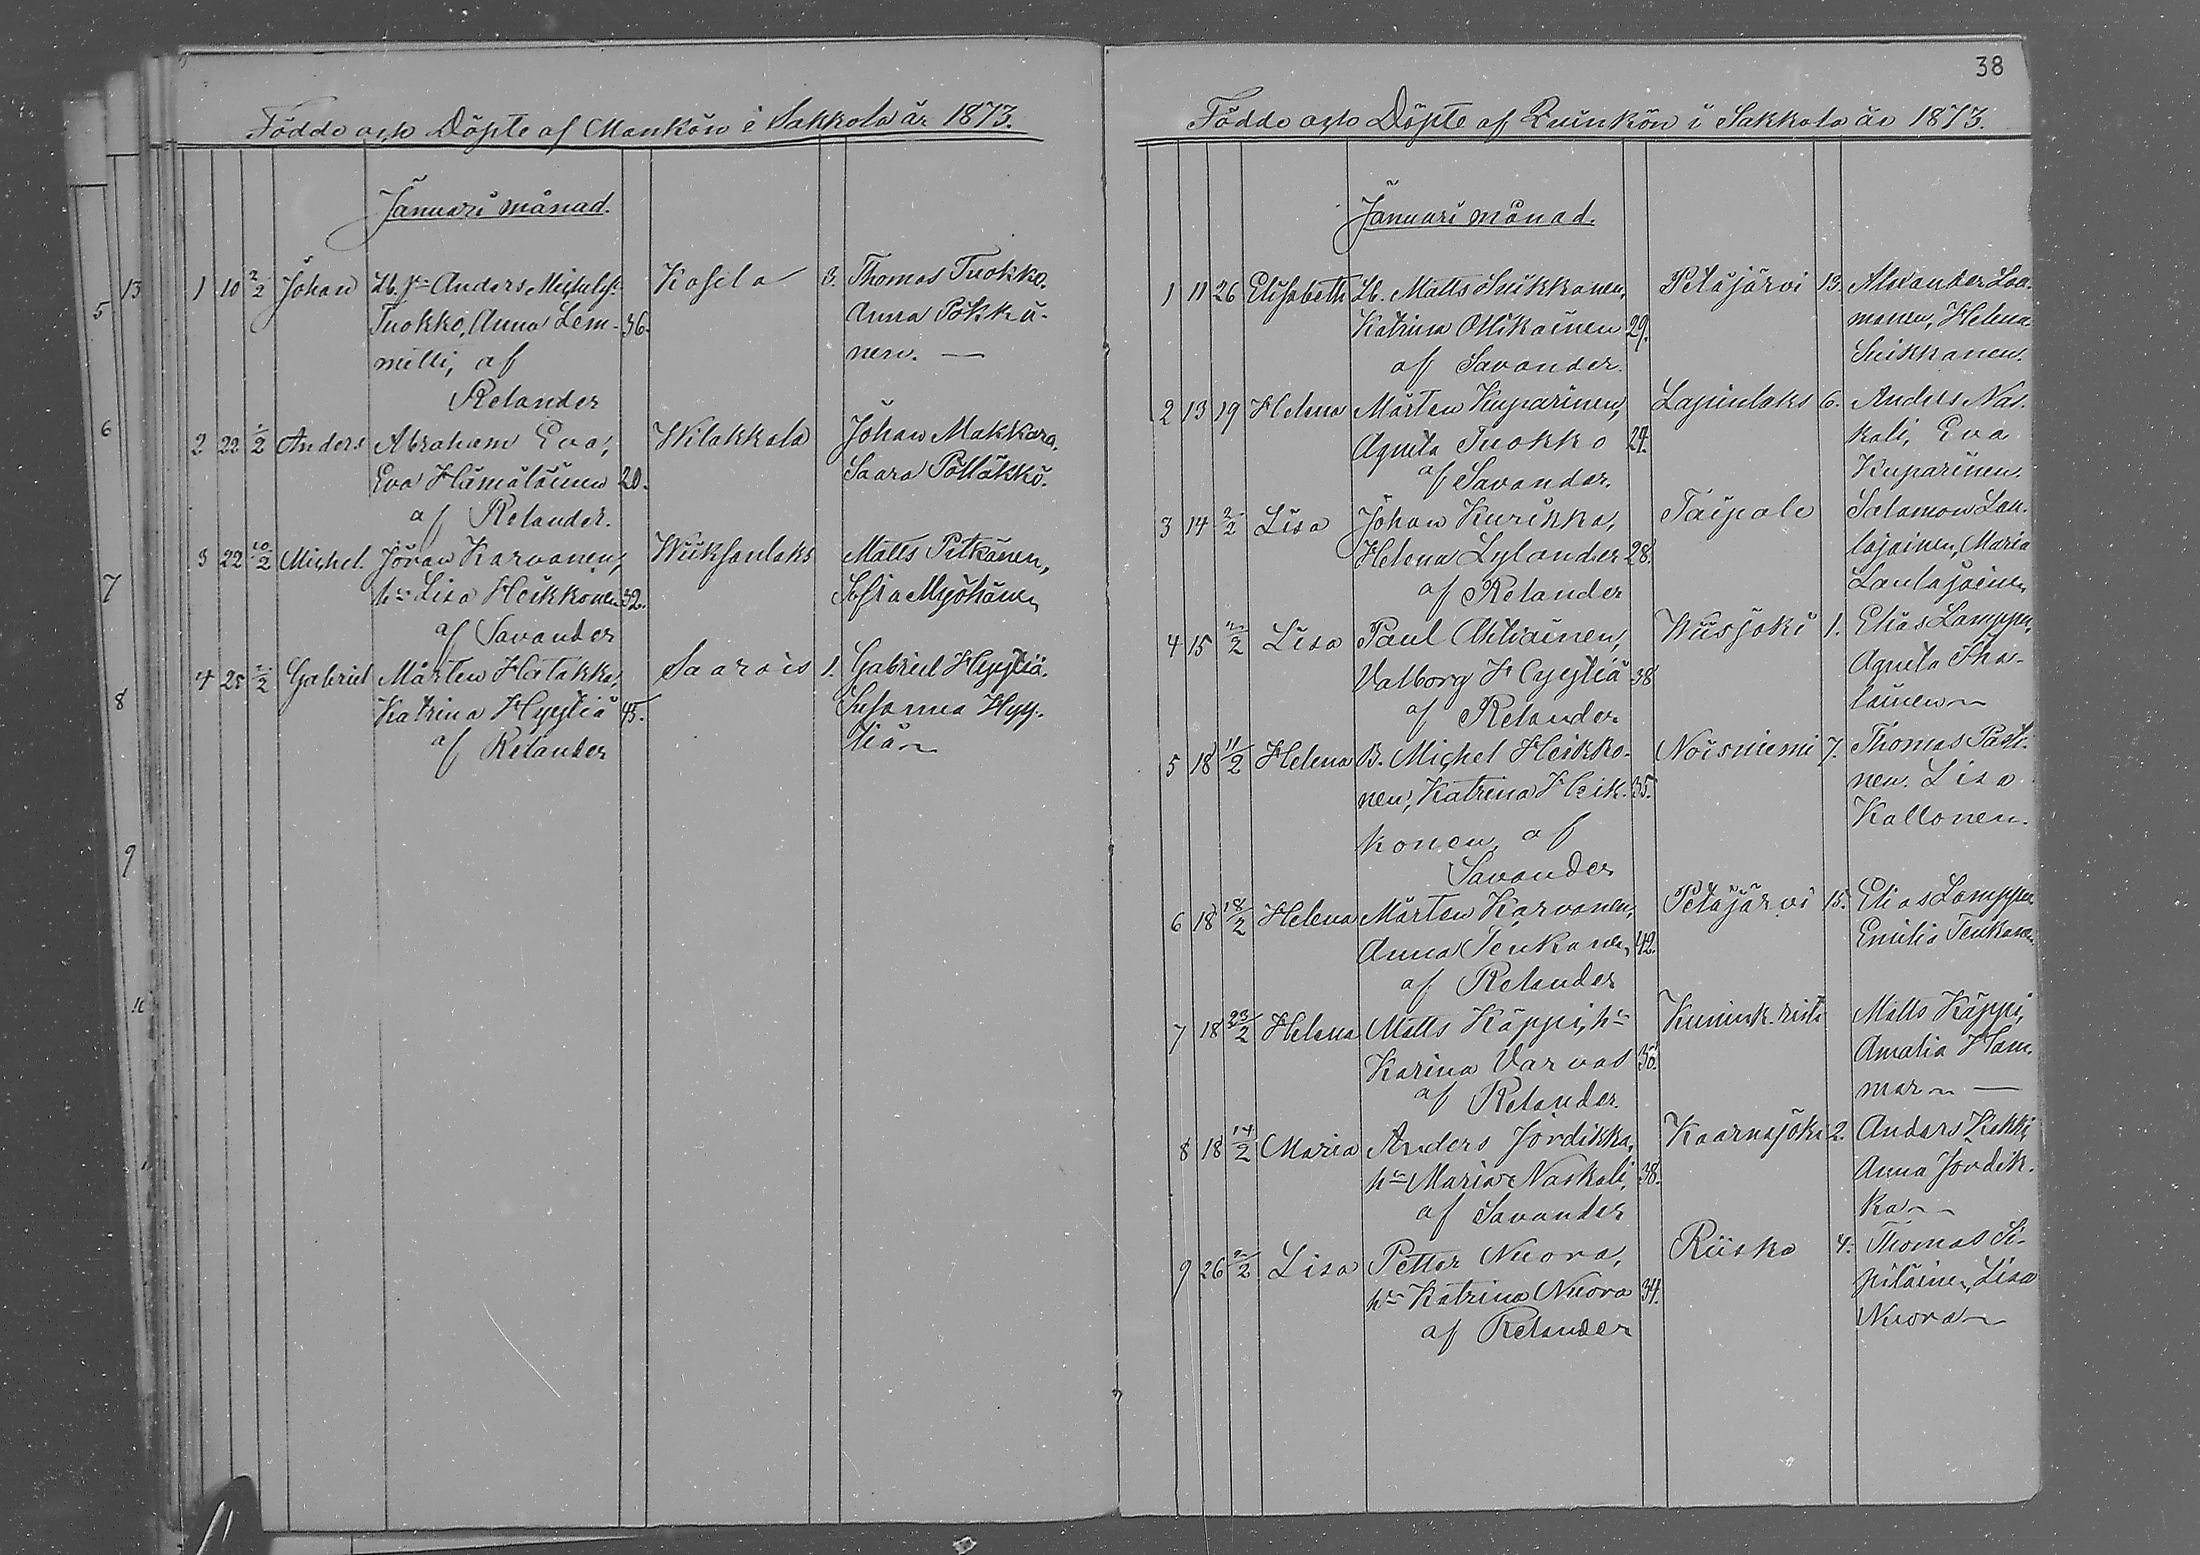 Födde och Döpte af Mankön i Sakkola år 1873.
Januari månad.
1 10 2/2 Johan Lb. Anders Michels. Kasela 3. Thomas Tuokko,
Tuokko, Anna Lem- 36. Anna Pökkü-
mitti, af nen. —
Relander
2 22 2/2 Anders Abraham Eva, Wilakkala Johan Makkara,
Eva Hämäläinen 20. Saara Pölläkkö.
af Relander.
3 22 10/2 Michel Jöran Karvonen, Wiiksanlaks Matts Pitkänen,
hu Lisa Heikkonen 32. Sofia Myöhänen
af Savander
4 25 2/2 Gabriel Mårten Hatakka, Saarois 1. Gabriel Hyytiä.
Katrina Hyytiä 45. Susanna Hyy-
af Relander tiä
5
13
6
7
8
9
38
Födde och Döpte af Quinkön i Sakkola år 1873.
Januari månad.
1 11 26 Elisabeth Lb. Matts Suikkanen, Petäjärvi 13. Alexander Laa-
Katrina Ollikainen 29. manen, Helena
af Savander. Suikkanen.
2 13 19 Helena Mårten Kuparinen, Lapinlaks 6. Anders Nas-
Agneta Tuokko 24. kali, Eva
af Savander. Kuparinen.
3 14 2/2 Lisa Johan Kurikka, Taipale Salamon Lau-
Helena Lylander 28. lajainen, Maria
af Relander Laulajainen
4 15 2/2 Lisa Paul Ahtiainen, Wiisjoki 1. Elias Lamppu,
Valborg Hyytiä 38 Agneta Iha-
af Relander lainen
5 18 11/2 Helena B. Michel Heikko- Noisniemi 7. Thomas Pasti-
nen, Katrina Heik- 35. nen. Lisa
konen, af Kallonen.
Savander
6 18 18/2 Helena Mårten Karvonen, Petäjärvi 15. Elias Lamppu
Anna Tenkanen, 42. Emilia Tenkanen
af Relander
7 18 23/2 Helena Matts Käppi, hu Kunink.risti Matts Käppi,
Karina Varvas 30. Amalia Ham-
af Relander. mar —
8 18 14/2 Maria Anders Jordikka, Kaarnajoki 2. Anders Kakki,
hu Maria Naskali, 38. Anna Jordik-
af Savander ka
9 26 2/2 Lisa Petter Nuora, Riiska 4. Thomas Si-
hu Katrina Nuora 34. piläinen, Lisa
af Relander Nuora